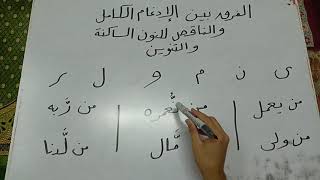 الفرق بين الإدغام الكامل
والناقص للنون الساكنة
والتنوين
ى ن م و ل ر
من يعمل | من نُّعمره | من رَّبه
من ولى | مَّال | من لَّدنا